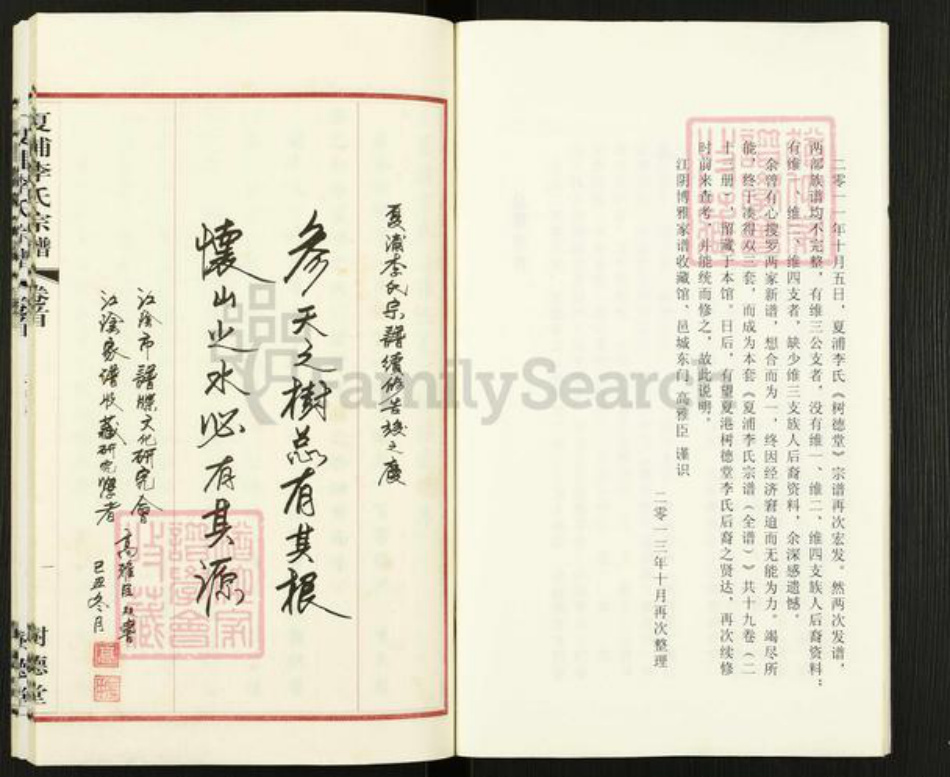 二零一一年十月五日，夏浦李氏《树德堂》宗谱再次宏发。然两次发谱，
两部族谱均不完整，有维三公支者，没有维一、维二、维四支族人后裔资料；
有维一、维二、维四支者，缺少维三支族人后裔资料，余深感遗憾。
余曾有心搜罗两家新谱，想合而为一，终因经济窘迫而无能为力。竭尽所
能，终于凑得双三套，而成为本套《夏浦李氏宗谱（全谱）》共十九卷（二
十三册），留藏于本馆。日后，有望夏港树德堂李氏后裔之贤达，再次续修
时前来查考，并能统而修之，故此说明。
江阴博雅家谱收藏馆、邑城东门 高雅臣 谨识
二零一三年十月再次整理
夏浦李氏宗譜續修告竣之慶
参天之樹总有其根
懷山之水必有其源
江陰市譜牒文化研究會
江陰家譜收藏研究學者
高雅臣
己丑冬月
夏浦李氏宗譜
卷首
一
树德堂
FamilySearch